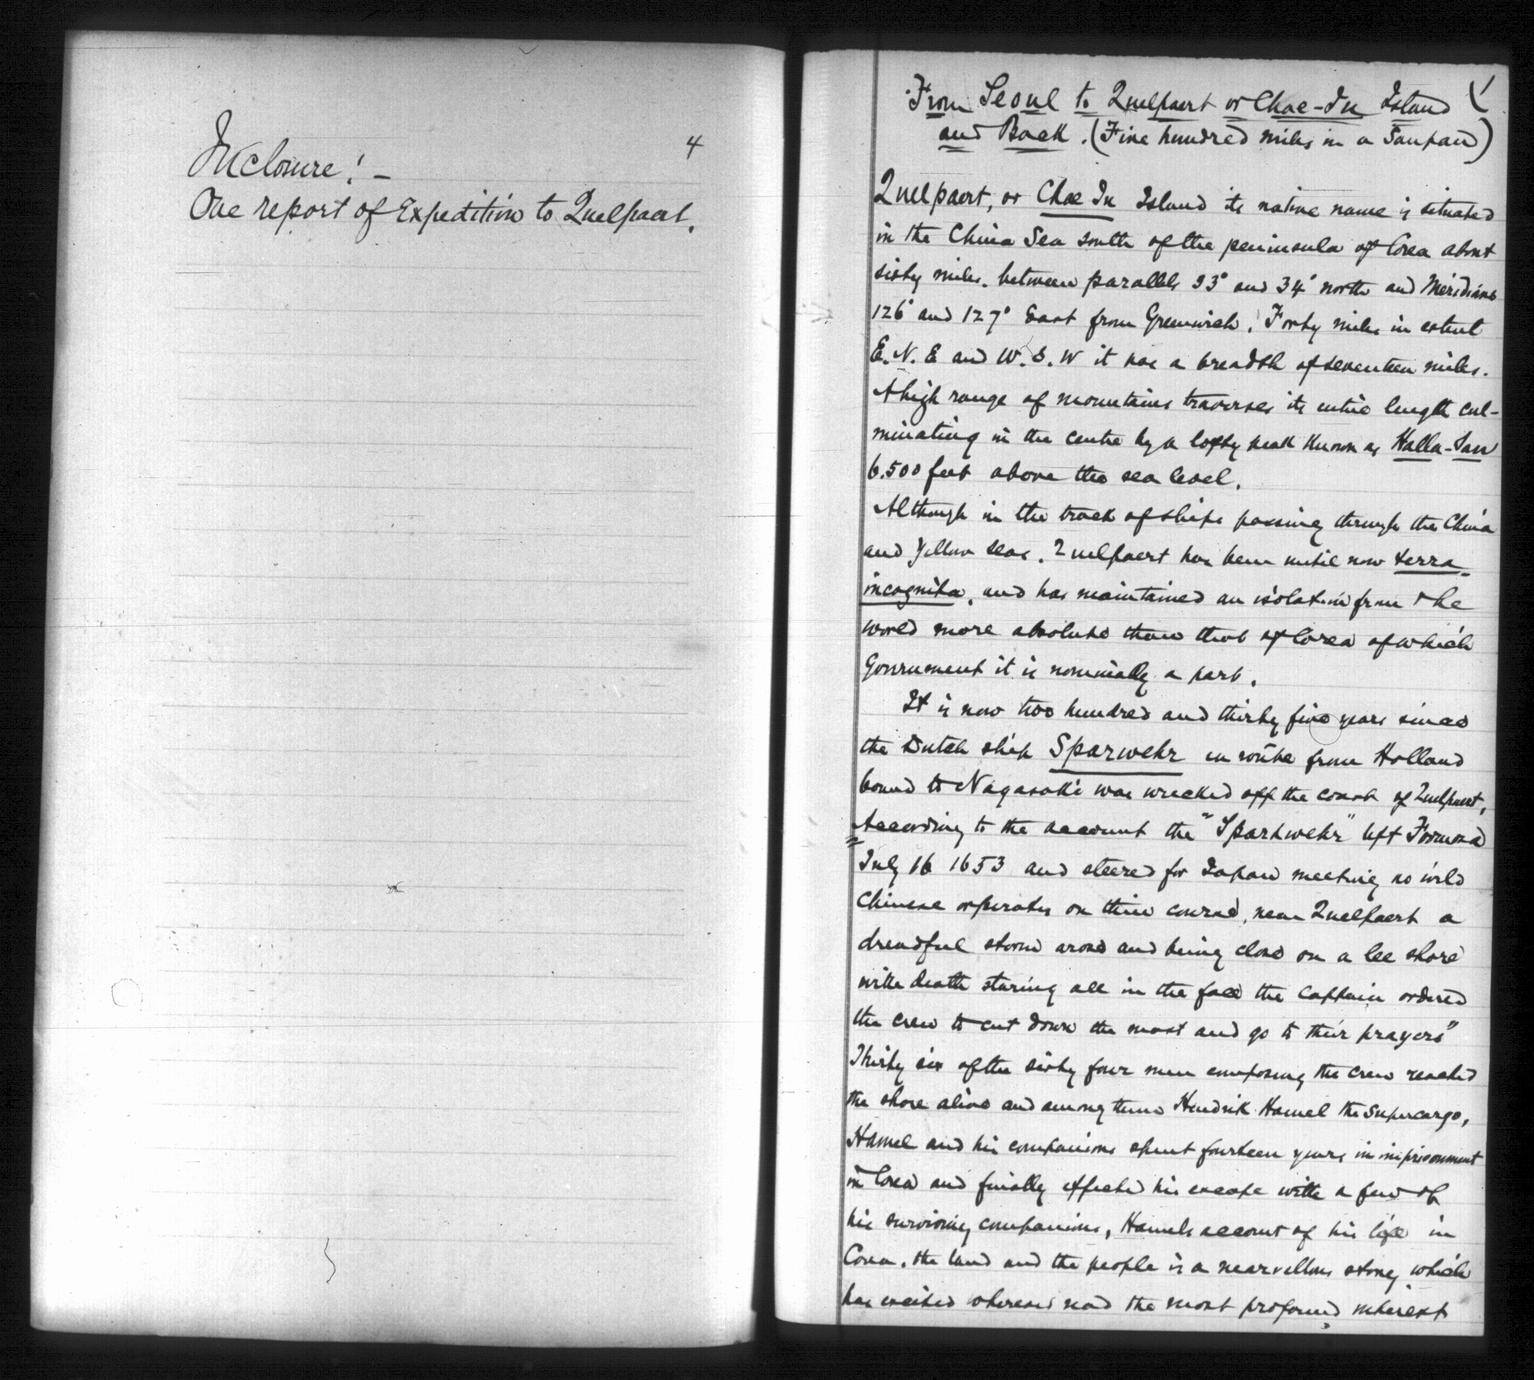 4
Inclosure! -
One report of Expedition to Quelpaert.
From Seoul to Quelpaert or Chae-Ju Island
and Back. (Five hundred miles in a Sanpan)
Quelpaert, or Chae Ju Island its native name is situated
in the China Sea south of the peninsula of Corea about
sixty miles. between parallels 33° and 34° north and Meridians
126° and 127° East from Greenwich. Forty miles in extent
E.N.E and W.S.W it has a breadth of seventeen miles.
A high range of mountains traverses its entire length cul-
minating in the centre by a lofty peak known as Halla-San
6.500 feet above the sea level.
Although in the track of ships passing through the China
and Yellow seas. Quelpaert has been until now terra
incognita, and has maintained an isolation from the
world more absolute than that of Corea of which
Government it is nominally a part.
It is now two hundred and thirty five years since
the Dutch ship Sparwehr en route from Holland
bound to Nagasaki was wrecked off the coast of Quelpaert,
According to the account the "Sparhwehr" left Formosa
July 16 1653 and steered for Japan meeting no wild
Chinese or pirates on their course, near Quelpaert a
dreadful storm arose and being close on a lee shore
with death staring all in the face the Captain ordered
the crew to cut down the mast and go to their prayers"
Thirty six of the sixty four men composing the crew reached
the shore alive and among them Hendrik Hamel the supercargo,
Hamel and his companions spent fourteen years in imprisonment
in Corea and finally effected his escape with a few of
his surviving companions, Hamels account of his life in
Corea. the land and the people is a marvellous story which
has excited wherever read the most profound interest